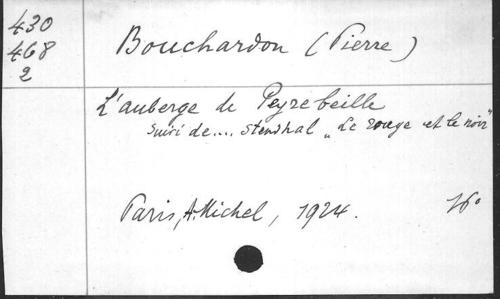 430
468
2
Bouchardon (Pierre)
L'auberge de Peyrebeille
suivi de.... Stendhal „Le rouge et le noir"
Paris, A. Michel, 1924. 16°